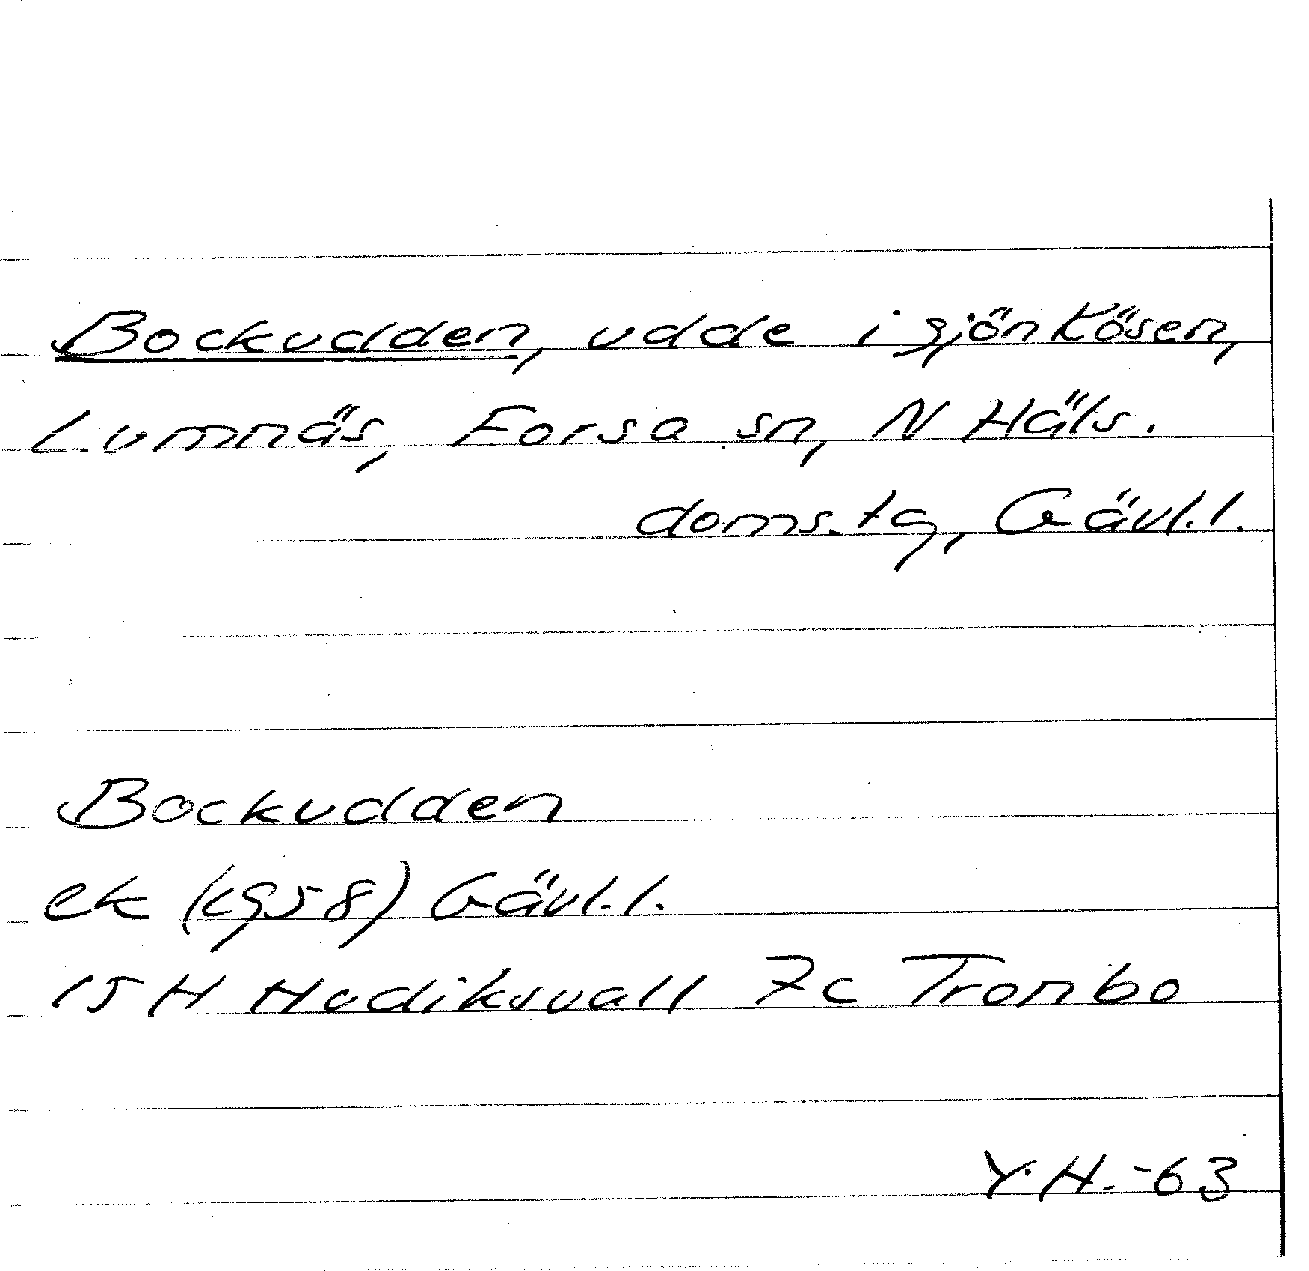 Bockudden, udde i sjön Kösen,
Lumnäs, Forsa sn, N Häls.
doms.tg, Gävl.l.
Bockudden
ek (1958) Gävl.l.
15H Hudiksvall 7c Trombo
Y.H.-63